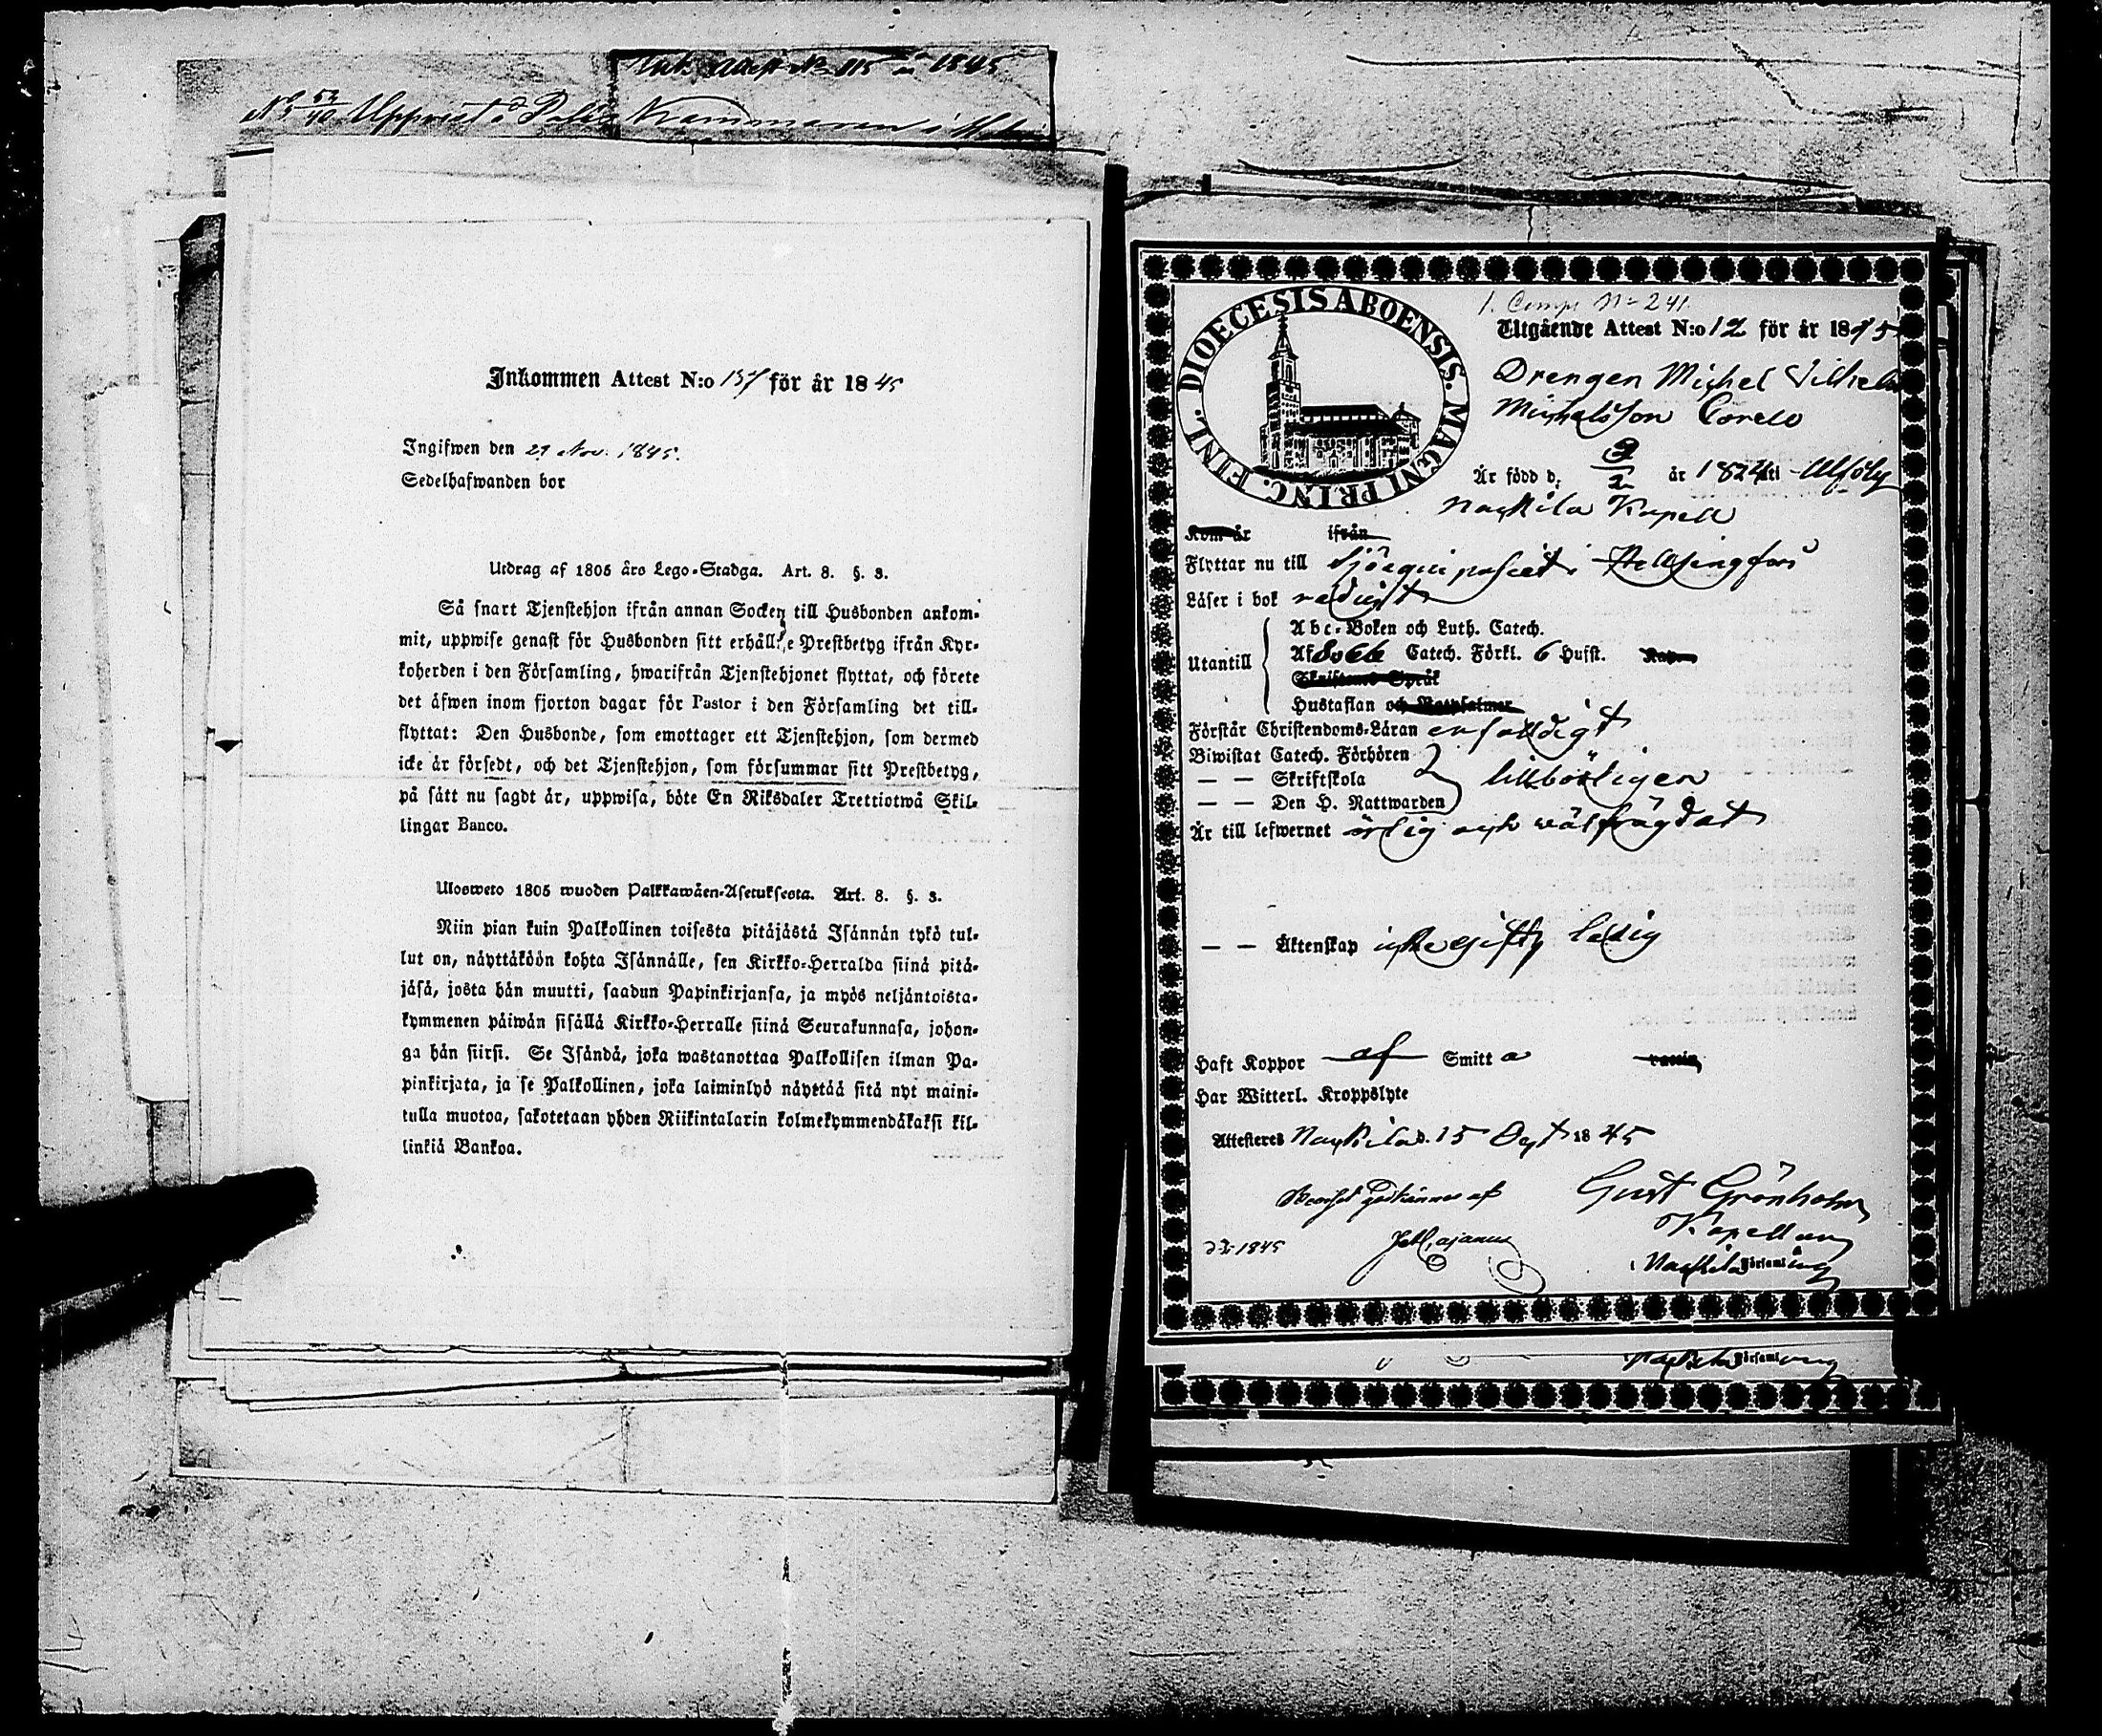 Ink. Attest No 115 år 1845
Uppvist å Polis Kammaren i
Inkommen Attest N:o 137 för år 1845
Ingifwen den 29 Nov. 1845.
Sedelhafwanden bor
Utdrag af 1805 års Lego-Stadga. Art. 8. §. 3.
Så snart Tjenstehjon ifrån annan Socken till Husbonden ankom-
mit, uppwise genast för Husbonden sitt erhållne Prestbetyg ifrån Kyr-
koherden i den Församling, hwarifrån Tjenstehjonet flyttat, och förete
det äfwen inom fjorton dagar för Pastor i den Församling det till-
flyttat: Den Husbonde, som emottager ett Tjenstehjon, som dermed
icke är försedt, och det Tjenstehjon, som försummar sitt Prestbetyg,
på sätt nu sagdt är, uppwisa, böte En Riksdaler Trettiotwå Skil-
lingar Banco.
Ulosweto 1805 wuoden Palkkawäen-Asetuksesta. Art. 8. §. 3.
Niin pian kuin Palkollinen toisesta pitäjästä Isännän tykö tul-
lut on, näyttäköön kohta Isännälle, sen Kirkko-Herralda siinä pitä-
jäsä, josta hän muutti, saadun Papinkirjansa, ja myös neljäntoista-
kymmenen päiwän sisällä Kirkko-Herralle siinä Seurakunnasa, johon-
ga hän siirsi. Se Isändä, joka wastanottaa Palkollisen ilman Pa-
pinkirjata, ja se Palkollinen, joka laiminlyö näyetää sitä nyt maini-
tulla muotoa, sakotetaan yhden Riikintalarin kolmekymmendäkaksi kil-
linkiä Bankoa.
DIOECESIS ABOENSIS. MAGNI PRINC. FINL.
1. Comp. No 241
Utgående Attest N:o 12 för år 1845
Drengen Michel Vilhelm
Michelsson Corell
Är född d. 3/2 år 1824 i Ulfsby
Nackila Kapell
Kom år ifrån
Flyttar nu till Sjöequipaget i Helsingfors
Läser i bok redigt
Utantill
Abc-Boken och Luth. Catech.
Af Catech. Förkl. 6 Hufst.
Skriftenes Språk
Hustaflan och Botpsalmer
Förstår Christendoms-Läran enfaldigt
Biwistat Catech. Förhören
— — Skriftskola tillbörligen
— — Den H. Nattwarden
Är till lefwernet ärlig och välfrägdat
— — Äktenskap icke gift, ledig
Haft Koppor af Smitta
Har Witterl. Kroppslyte
Attesteras Nackila d. 15 Oct 1845
godkännes af
Gust Grönholm
Kapellan
1845
i Nackila Församling
Nackila Församling